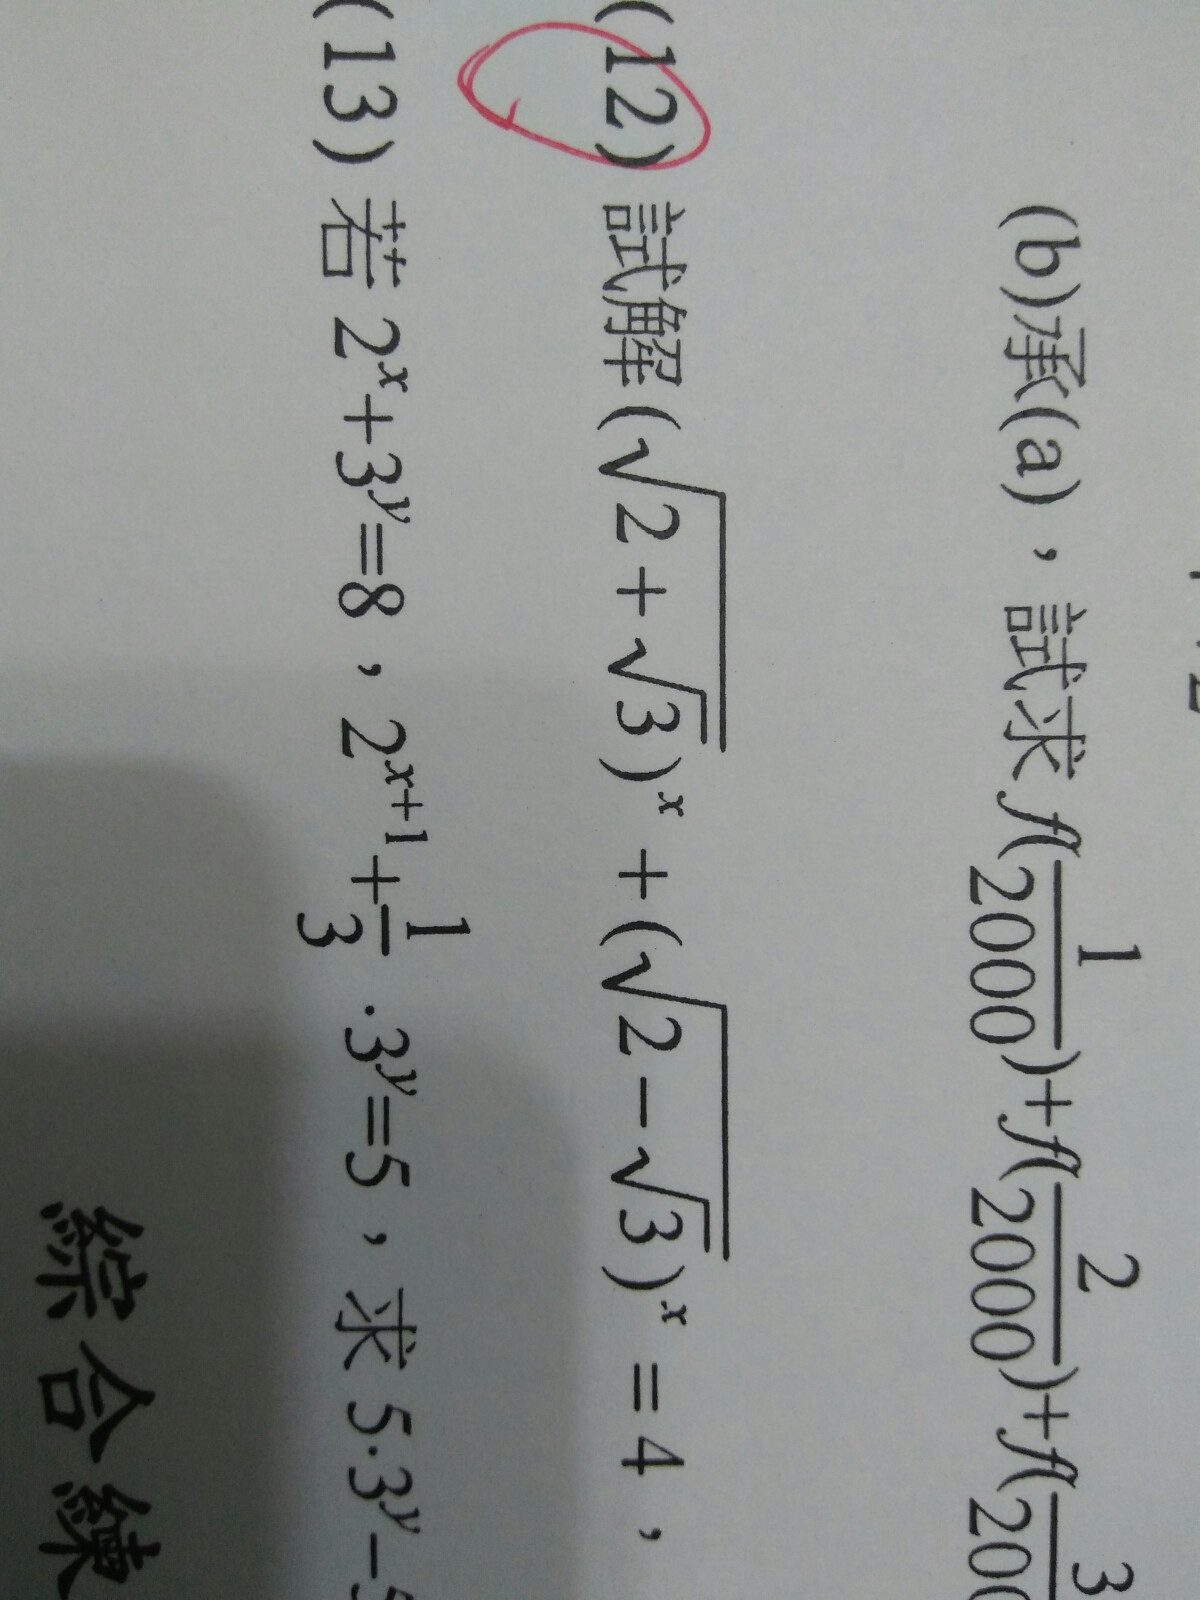 (b)承(a)，試求 f(1/2000)+f(2/2000)+f(3/200
(12) 試解 (√(2+√3))^x + (√(2-√3))^x = 4，
(13) 若 2^x+3^y=8，2^(x+1)+1/3·3^y=5，求 5·3^y-5
綜合練